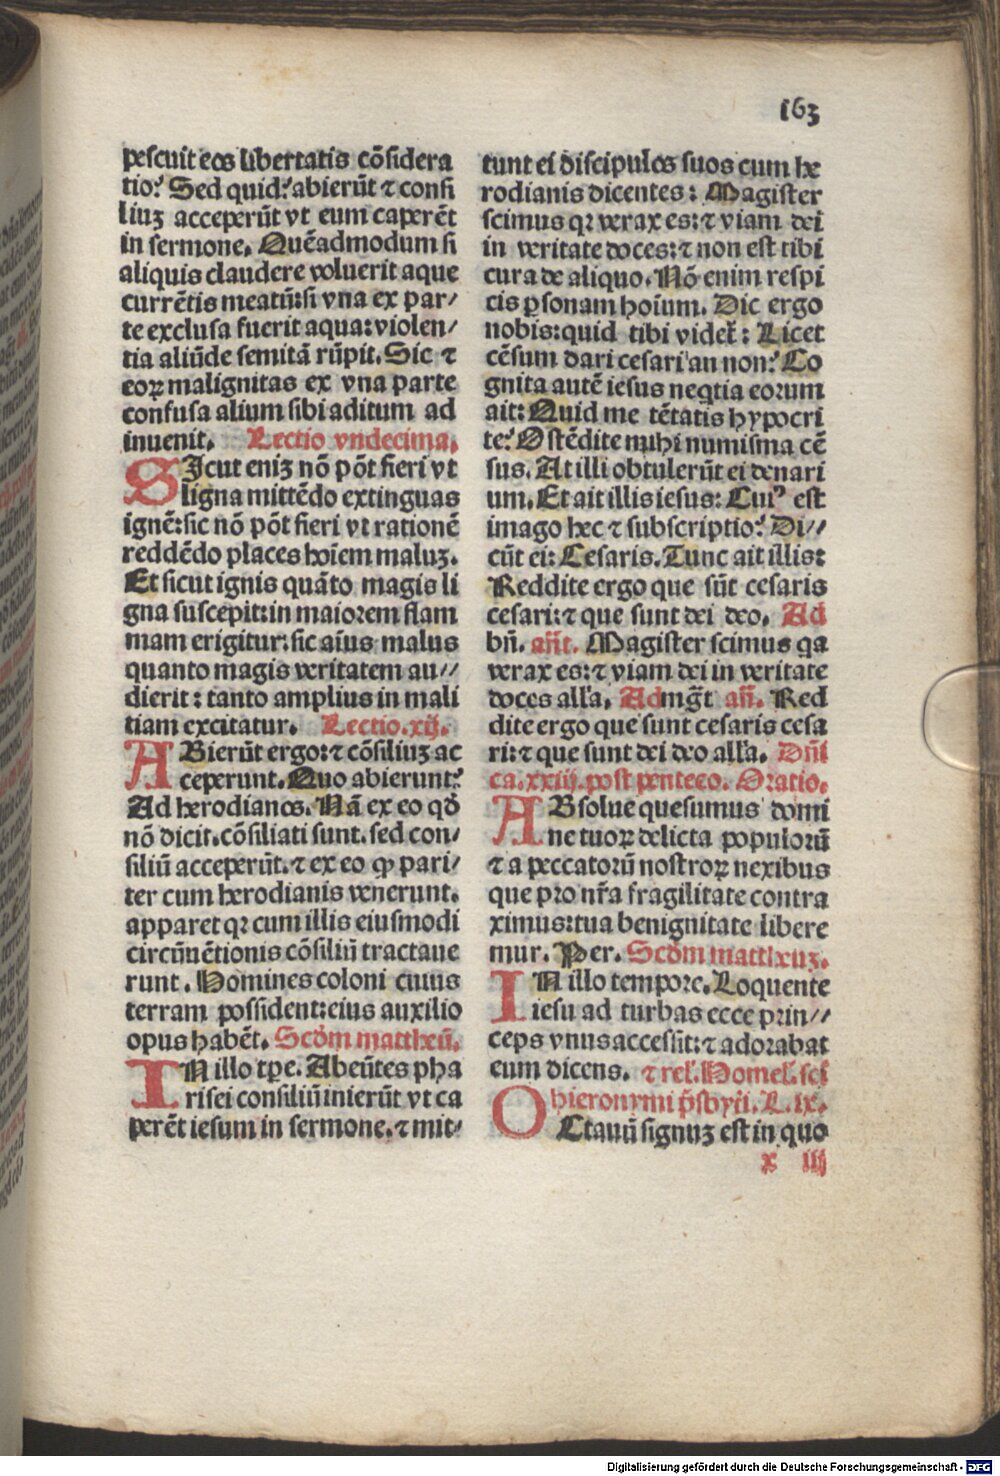 163
pescuit eos libertatis cõsidera
tio? Sed quid? abierũt ⁊ consi
liuʒ acceperũt vt eum caperẽt
in sermone. Quẽadmodum si
aliquis claudere voluerit aque
currẽtis meatũ: si vna ex par⸗
te exclusa fuerit aqua: violen⸗
tia aliũde semitã rũpit. Sic ⁊
eoꝝ malignitas ex vna parte
confusa alium sibi aditum ad
inuenit. Lectio vndecima.
SIcut eniʒ nõ põt fieri vt
ligna mittẽdo extinguas
ignẽ: sic nõ põt fieri vt rationẽ
reddẽdo places hoĩem maluʒ.
Et sicut ignis quãto magis li
gna suscepit: in maiorem flam
mam erigitur: sic aĩus malus
quanto magis veritatem au⸗
dierit: tanto amplius in mali
tiam excitatur. Lectio.xij.
ABierũt ergo: ⁊ cõsiliuʒ ac
ceperunt. Quo abierunt?
Ad herodianos. Nã ex eo qđ
nõ dicit. cõsiliati sunt. sed con⸗
siliũ acceperũt. ⁊ ex eo ꝙ pari⸗
ter cum herodianis venerunt.
apparet qꝛ cum illis eiusmodi
circũuẽtionis cõsiliũ tractaue
runt. Homines coloni cuius
terram possident: eius auxilio
opus habẽt. Scđm mattheũ.
IN illo tꝑe. Abeũtes pha
risei consiliũ inierũt vt ca
perẽt iesum in sermone. ⁊ mit⸗
tunt ei discipulos suos cum he
rodianis dicentes: Magister
scimus qꝛ verax es: ⁊ viam dei
in veritate doces: ⁊ non est tibi
cura de aliquo. Nõ enim respi
cis ꝑsonam hoĩum. Dic ergo
nobis: quid tibi videt̃: Licet
cẽsum dari cesari an non? Co
gnita autẽ iesus neq̃tia eorum
ait: Quid me tẽtatis hypocri
te? Ostẽdite mihi numisma cẽ
sus. At illi obtulerũt ei denari
um. Et ait illis iesus: Cuiꝰ est
imago hec ⁊ subscriptio? Di⸗
cũt ei: Cesaris. Tunc ait illis:
Reddite ergo que sũt cesaris
cesari: ⁊ que sunt dei deo. Ad
bñ. añt. Magister scimus qa
verax es: ⁊ viam dei in veritate
doces alľa. Ad mg̃t añ. Red
dite ergo que sunt cesaris cesa
ri: ⁊ que sunt dei deo alľa. Dñi
ca. xxiij. post penteco. Oratio.
ABsolue quesumus domi
ne tuoꝝ delicta populorũ
⁊ a peccatorũ nostroꝝ nexibus
que pro nr̃a fragilitate contra
ximus: tua benignitate libere
mur. Per. Scđm mattheuʒ.
IN illo tempore. Loquente
iesu ad turbas ecce prin⸗
ceps vnus accessit: ⁊ adorabat
eum dicens. ⁊ rel̃. Homel. sci
hieronymi p̃sbyťi. L. ix.
OCtauũ signuʒ est in quo
x iiij